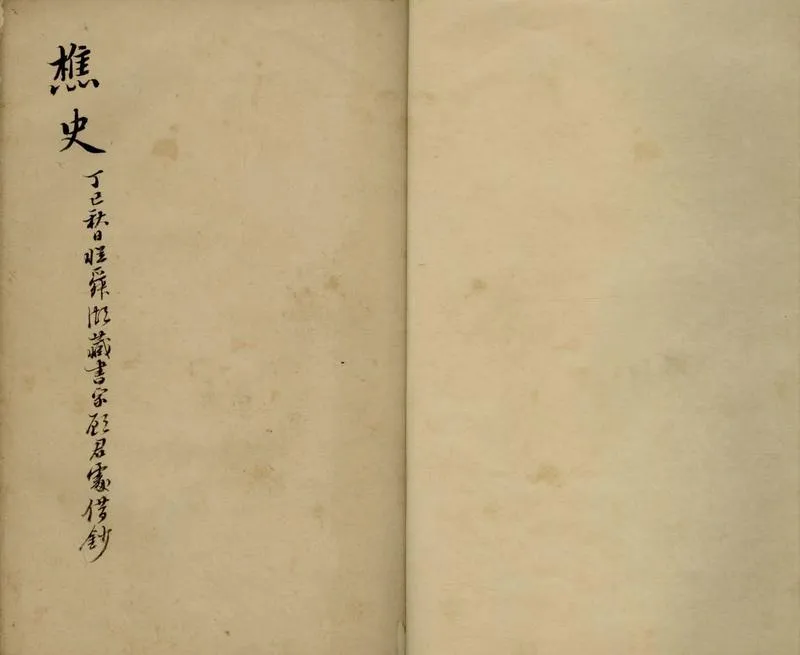 樵史
丁巳秋日從舜湖藏書家顧君處借鈔